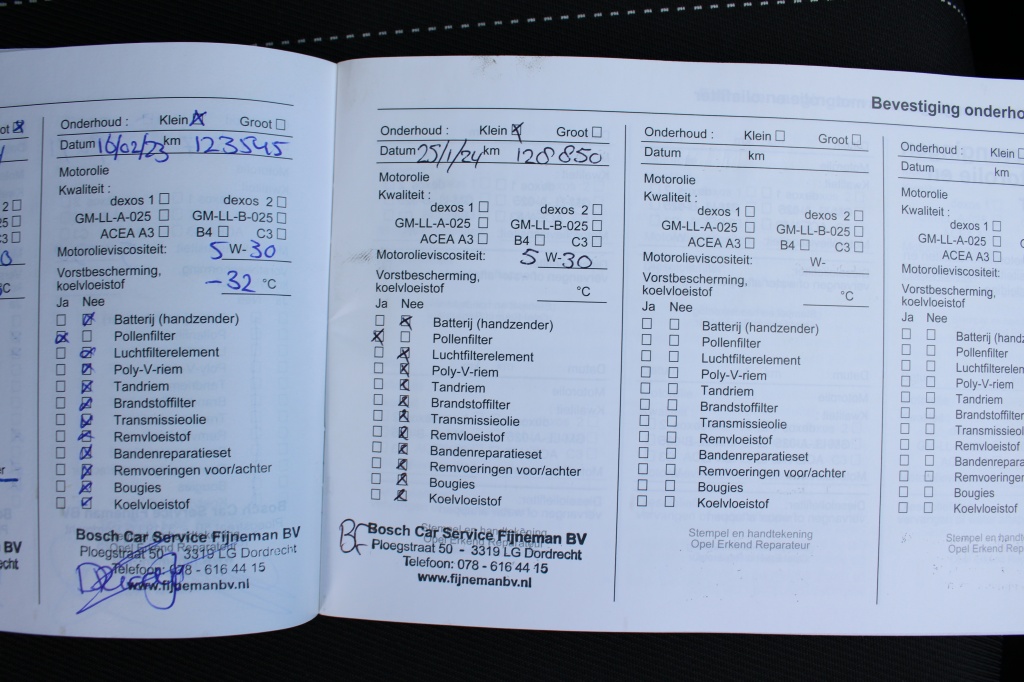 Bevestiging onderho
ot ☒
2 ☐
25 ☐
C3 ☐
Onderhoud : Klein ☒ Groot ☐
Datum 16/02/23 km 123545
Motorolie
Kwaliteit :
dexos 1 ☐ dexos 2 ☐
GM-LL-A-025 ☐ GM-LL-B-025 ☐
ACEA A3 ☐ B4 ☐ C3 ☐
Motorolieviscositeit: 5 W-30
Vorstbescherming,
koelvloeistof -32 °C
Ja Nee
☐ ☒ Batterij (handzender)
☒ ☐ Pollenfilter
☐ ☒ Luchtfilterelement
☐ ☒ Poly-V-riem
☐ ☒ Tandriem
☐ ☒ Brandstoffilter
☐ ☒ Transmissieolie
☐ ☒ Remvloeistof
☐ ☒ Bandenreparatieset
☐ ☒ Remvoeringen voor/achter
☐ ☒ Bougies
☐ ☒ Koelvloeistof
Stempel en handtekening
Opel Erkend Reparateur
Bosch Car Service Fijneman BV
Ploegstraat 50 - 3319 LG Dordrecht
Telefoon: 078 - 616 44 15
www.fijnemanbv.nl
Onderhoud : Klein ☒ Groot ☐
Datum 25/1/24 km 128850
Motorolie
Kwaliteit :
dexos 1 ☐ dexos 2 ☐
GM-LL-A-025 ☐ GM-LL-B-025 ☐
ACEA A3 ☐ B4 ☐ C3 ☐
Motorolieviscositeit: 5 W-30
Vorstbescherming,
koelvloeistof °C
Ja Nee
☐ ☒ Batterij (handzender)
☒ ☐ Pollenfilter
☐ ☒ Luchtfilterelement
☐ ☒ Poly-V-riem
☐ ☒ Tandriem
☐ ☒ Brandstoffilter
☐ ☒ Transmissieolie
☐ ☒ Remvloeistof
☐ ☒ Bandenreparatieset
☐ ☒ Remvoeringen voor/achter
☐ ☒ Bougies
☐ ☒ Koelvloeistof
Stempel en handtekening
Opel Erkend Reparateur
Bosch Car Service Fijneman BV
Ploegstraat 50 - 3319 LG Dordrecht
Telefoon: 078 - 616 44 15
www.fijnemanbv.nl
Onderhoud : Klein ☐ Groot ☐
Datum km
Motorolie
Kwaliteit :
dexos 1 ☐ dexos 2 ☐
GM-LL-A-025 ☐ GM-LL-B-025 ☐
ACEA A3 ☐ B4 ☐ C3 ☐
Motorolieviscositeit: W-
Vorstbescherming,
koelvloeistof °C
Ja Nee
☐ ☐ Batterij (handzender)
☐ ☐ Pollenfilter
☐ ☐ Luchtfilterelement
☐ ☐ Poly-V-riem
☐ ☐ Tandriem
☐ ☐ Brandstoffilter
☐ ☐ Transmissieolie
☐ ☐ Remvloeistof
☐ ☐ Bandenreparatieset
☐ ☐ Remvoeringen voor/achter
☐ ☐ Bougies
☐ ☐ Koelvloeistof
Stempel en handtekening
Opel Erkend Reparateur
Onderhoud : Klein ☐
Datum km
Motorolie
Kwaliteit :
dexos 1 ☐
GM-LL-A-025 ☐ GM
ACEA A3 ☐
Motorolieviscositeit:
Vorstbescherming,
koelvloeistof
Ja Nee
☐ ☐ Batterij (handz
☐ ☐ Pollenfilter
☐ ☐ Luchtfilterelem
☐ ☐ Poly-V-riem
☐ ☐ Tandriem
☐ ☐ Brandstoffilter
☐ ☐ Transmissieoli
☐ ☐ Remvloeistof
☐ ☐ Bandenrepara
☐ ☐ Remvoeringen
☐ ☐ Bougies
☐ ☐ Koelvloeistof
Stempel en handt
Opel Erkend Re